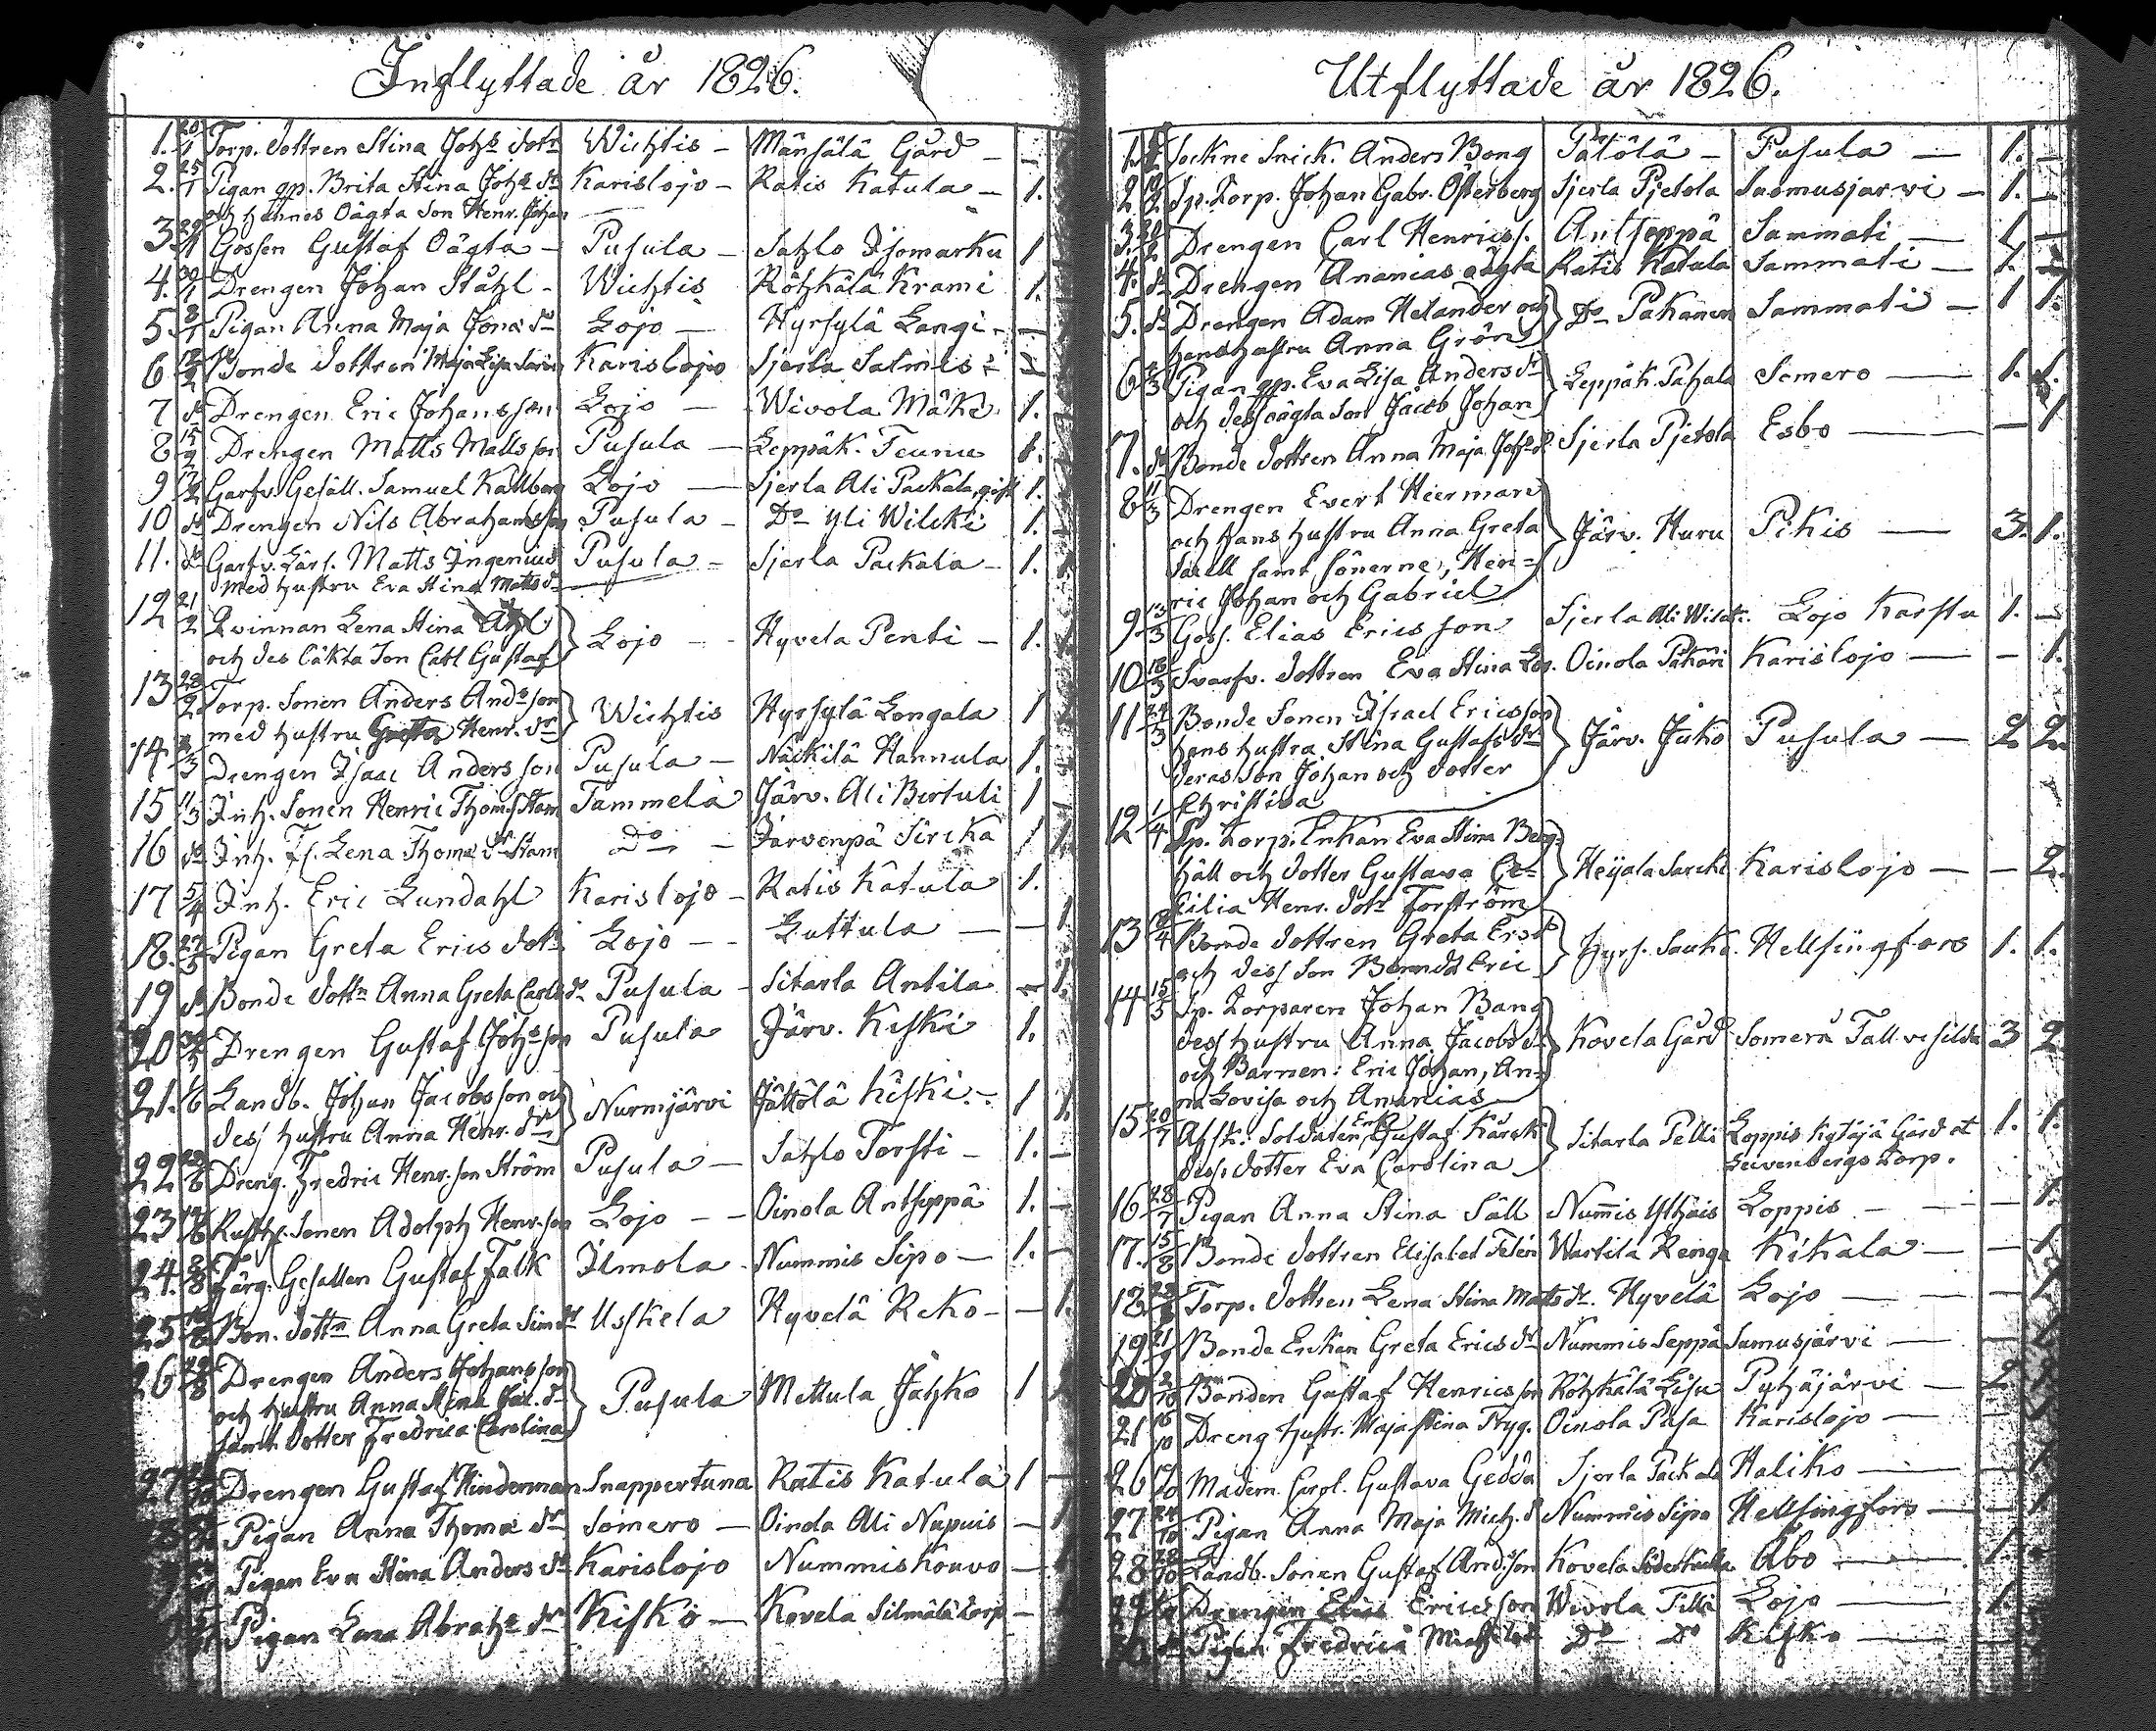 Inflyttade år 1826.
1. 20/1 Torp. dottren Stina Johs dotr Wichtis - Mänsälä Gård - -
2. 25/1 Pigan gp. Brita Stina Johs dr Karislojo - Ratis Katula - 1.
och hännes Oägta Son Henr. Johan
3 Gossen Gustaf Oägta - Pusula - Sahlo Isomarku 1
4. 30/1 Drengen Johan Ståhl - Wichtis Röhkälä Krami 1.
5 Pigan Anna Maja Jona dr Lojo - Hyrsylä Langi - -
6 Bonde dottren Maja Lisa Karislojo Sjerla Salmis
7 do Drengen Eric Johansson Lojo - Wivola Mäki 1. -
8 Drengen Matts Matts son Pusula - Leppäk. Teunu
9 Garfv. Gesäll. Samuel Kallberg Lojo - Sjerla Ali Packala, gift 1.
10 do Drengen Nils Abrahamsson Pusula - Do Yli Wilcki 1.
11. do Garfv. Lärl. Matts Ingenius Pusula - Sjerla Packala - 1.
med hustru Eva Stina Matts dr
12 21/2 Qvinnan Lena Stina
och des Oäkta Son Carl Gustaf Lojo - Hyvela Penti - 1.
13 28/2 Torp. Sonen Anders Ands son
med hustru Greta Henr. dr Wichtis Hyrsylä Longala 1
14 Drengen Isaac Anders son Pusula - Näckilä Hannula 1.
15 11/3 Inh. Sonen Henric Thoms. Stam Tammela Järv. Ali Birtuli 1 -
16 do Inh. Lena Thomæ dr Stam Do - Järvenpä Sircka
17 5/4 Inh. Eric Lundahl Karislojo - Ratis Katula 1.
18. 27/5 Pigan Greta Erics dotr Lojo - - Luttula - - 1
19 do Bonde dottn Anna Greta Carls dr Pusula - Sitarla Antila - 1.
20 Drengen Gustaf Johs son Pusula Järv. Kiski 1.
21. Landb. Johan Jacobsson och
dess hustru Anna Henr. dr Nurmjärvi Jättölä Kiski - 1 1.
22 Dreng. Fredric Henr. son Ström Pusula - Sahlo Torsti - 1. -
23 Rusth. Sonen Adolph Henr. son Lojo - - Oinola Antseppä 1. -
24. 8/8 Färg. Gesällen Gustaf Falk Ilmola - Nummis Sipo - 1. -
25 Bon. dottn Anna Greta Sim dr Usskela Hyvelä Reko - - 1.
26 Drengen Anders Johansson
och hustru Anna Stina Jac. dr
samt dotter Fredrica Carolina Pusula Mettula Jahko 1
27 Drengen Gustaf Hinderman Snappertuna Ratis Katula 1 -
Pigan Anna Thomæ dr Somero - Oinola Ali Napuis - 1
Pigan Eva Stina Anders dr Karislojo Nummis Kouvo -
Pigan Lena Abrahs dr Kisko - Kovela Silmälä torp -
Utflyttade år 1826.
1. Sockne Snick. Anders Bong Pälölä - Pusula - 1. -
2 Sp. Torp. Johan Gabr. Österberg Sjerla Pjetola Saomusjarvi - 1. -
3. Drengen Carl Henrics s. Antseppä Sammati - 1 -
4. do Drengen Ananias oägta Ratis Katula Sammati - 1. -
5. do Drengen Adam Helander och
hans hustru Anna Grön Do Pakanen Sammati - 1 1.
6 Pigan gp. Eva Lisa Anders dr
och dess oägta Son Jacob Johan Leppäk. Pahala Somero - 1. 1.
7. do Bonde dottren Anna Maja Johs dr Sjerla Pjetola Esbo - - 1
8 11/3 Drengen Evert Hierman
och hans hustru Anna Greta
Säell samt sönerne, Hen=
ric Johan och Gabriel Järv. Huru Pikis - 3. 1.
9 13/3 Goss. Elias Erics son Sjerla Ali Wilcki. Lojo Karstu 1. -
10 18/3 Svarfv. dottren Eva Stina Oinola Pahari Karislojo - - 1.
11 24/3 Bonde Sonen Israel Ericsson
hans hustra Stina Gustafs dr
deras Son Johan och dotter
Christina Järv. Juko Pusula - 2 2.
12 1/4 Sp. Torp. Enkan Eva Stina Berg=
häll och dotter Gustava Ce=
cilia Henr. dotr Forsström Heijala Sarcki Karislojo - - 2.
13 Bonde dottren Greta Ers dr
och dess Son Eric Hyrs. Sauko. Hellsingfors 1. 1.
14 15/5 Sp. Torparen Johan Bang
dess hustru Anna Jacobs dr
och Barnen: Eric Johan, An=
na Lovisa och Ananias Kovela Gård Somero Tallvesilda 3 2
15 20/7 Afsk. Soldaten Gustaf Kärck
dess dotter Eva Carolina Sitarla Pelli Loppis Kytäjä Gård at
Levenbergs Torp. 1. 1.
16 28/7 Pigan Anna Stina Säll Nummis Ylhäis Loppis - - - 1.
17. 15/8 Bonde dottren Elisabet Felén Wastila Renga Kikala - - 1.
18 Torp. dottren Lena Stina Matts dr. Hyvelä Lojo - - - 1
19 21/9 Bonde Enkan Greta Erics dr Nummis Seppä Sumusjärvi - - 1
20 2/10 Bonden Gustaf Henricsson Röhkälä Lisu Pyhäjärvi - 2
21 16/10 Dreng hustr. Maja Stina Tryg. Oinola Pasa Karislojo -
26 Madem. Carol. Gustava Gedda Sjerla Packal Haliko - 1
27 24/10 Pigan Anna Maja Mich. dr Nummis Sipo Hellsingfors - 1
28 28/10 Landb. Sonen Gustaf And. son Kovela Söderkulla Åbo - 1
29 Drengen Elias Ericsson Wivola Tilli Lojo - 1.
30 do Pigan Fredrica Michels dr Do Do Kisko -